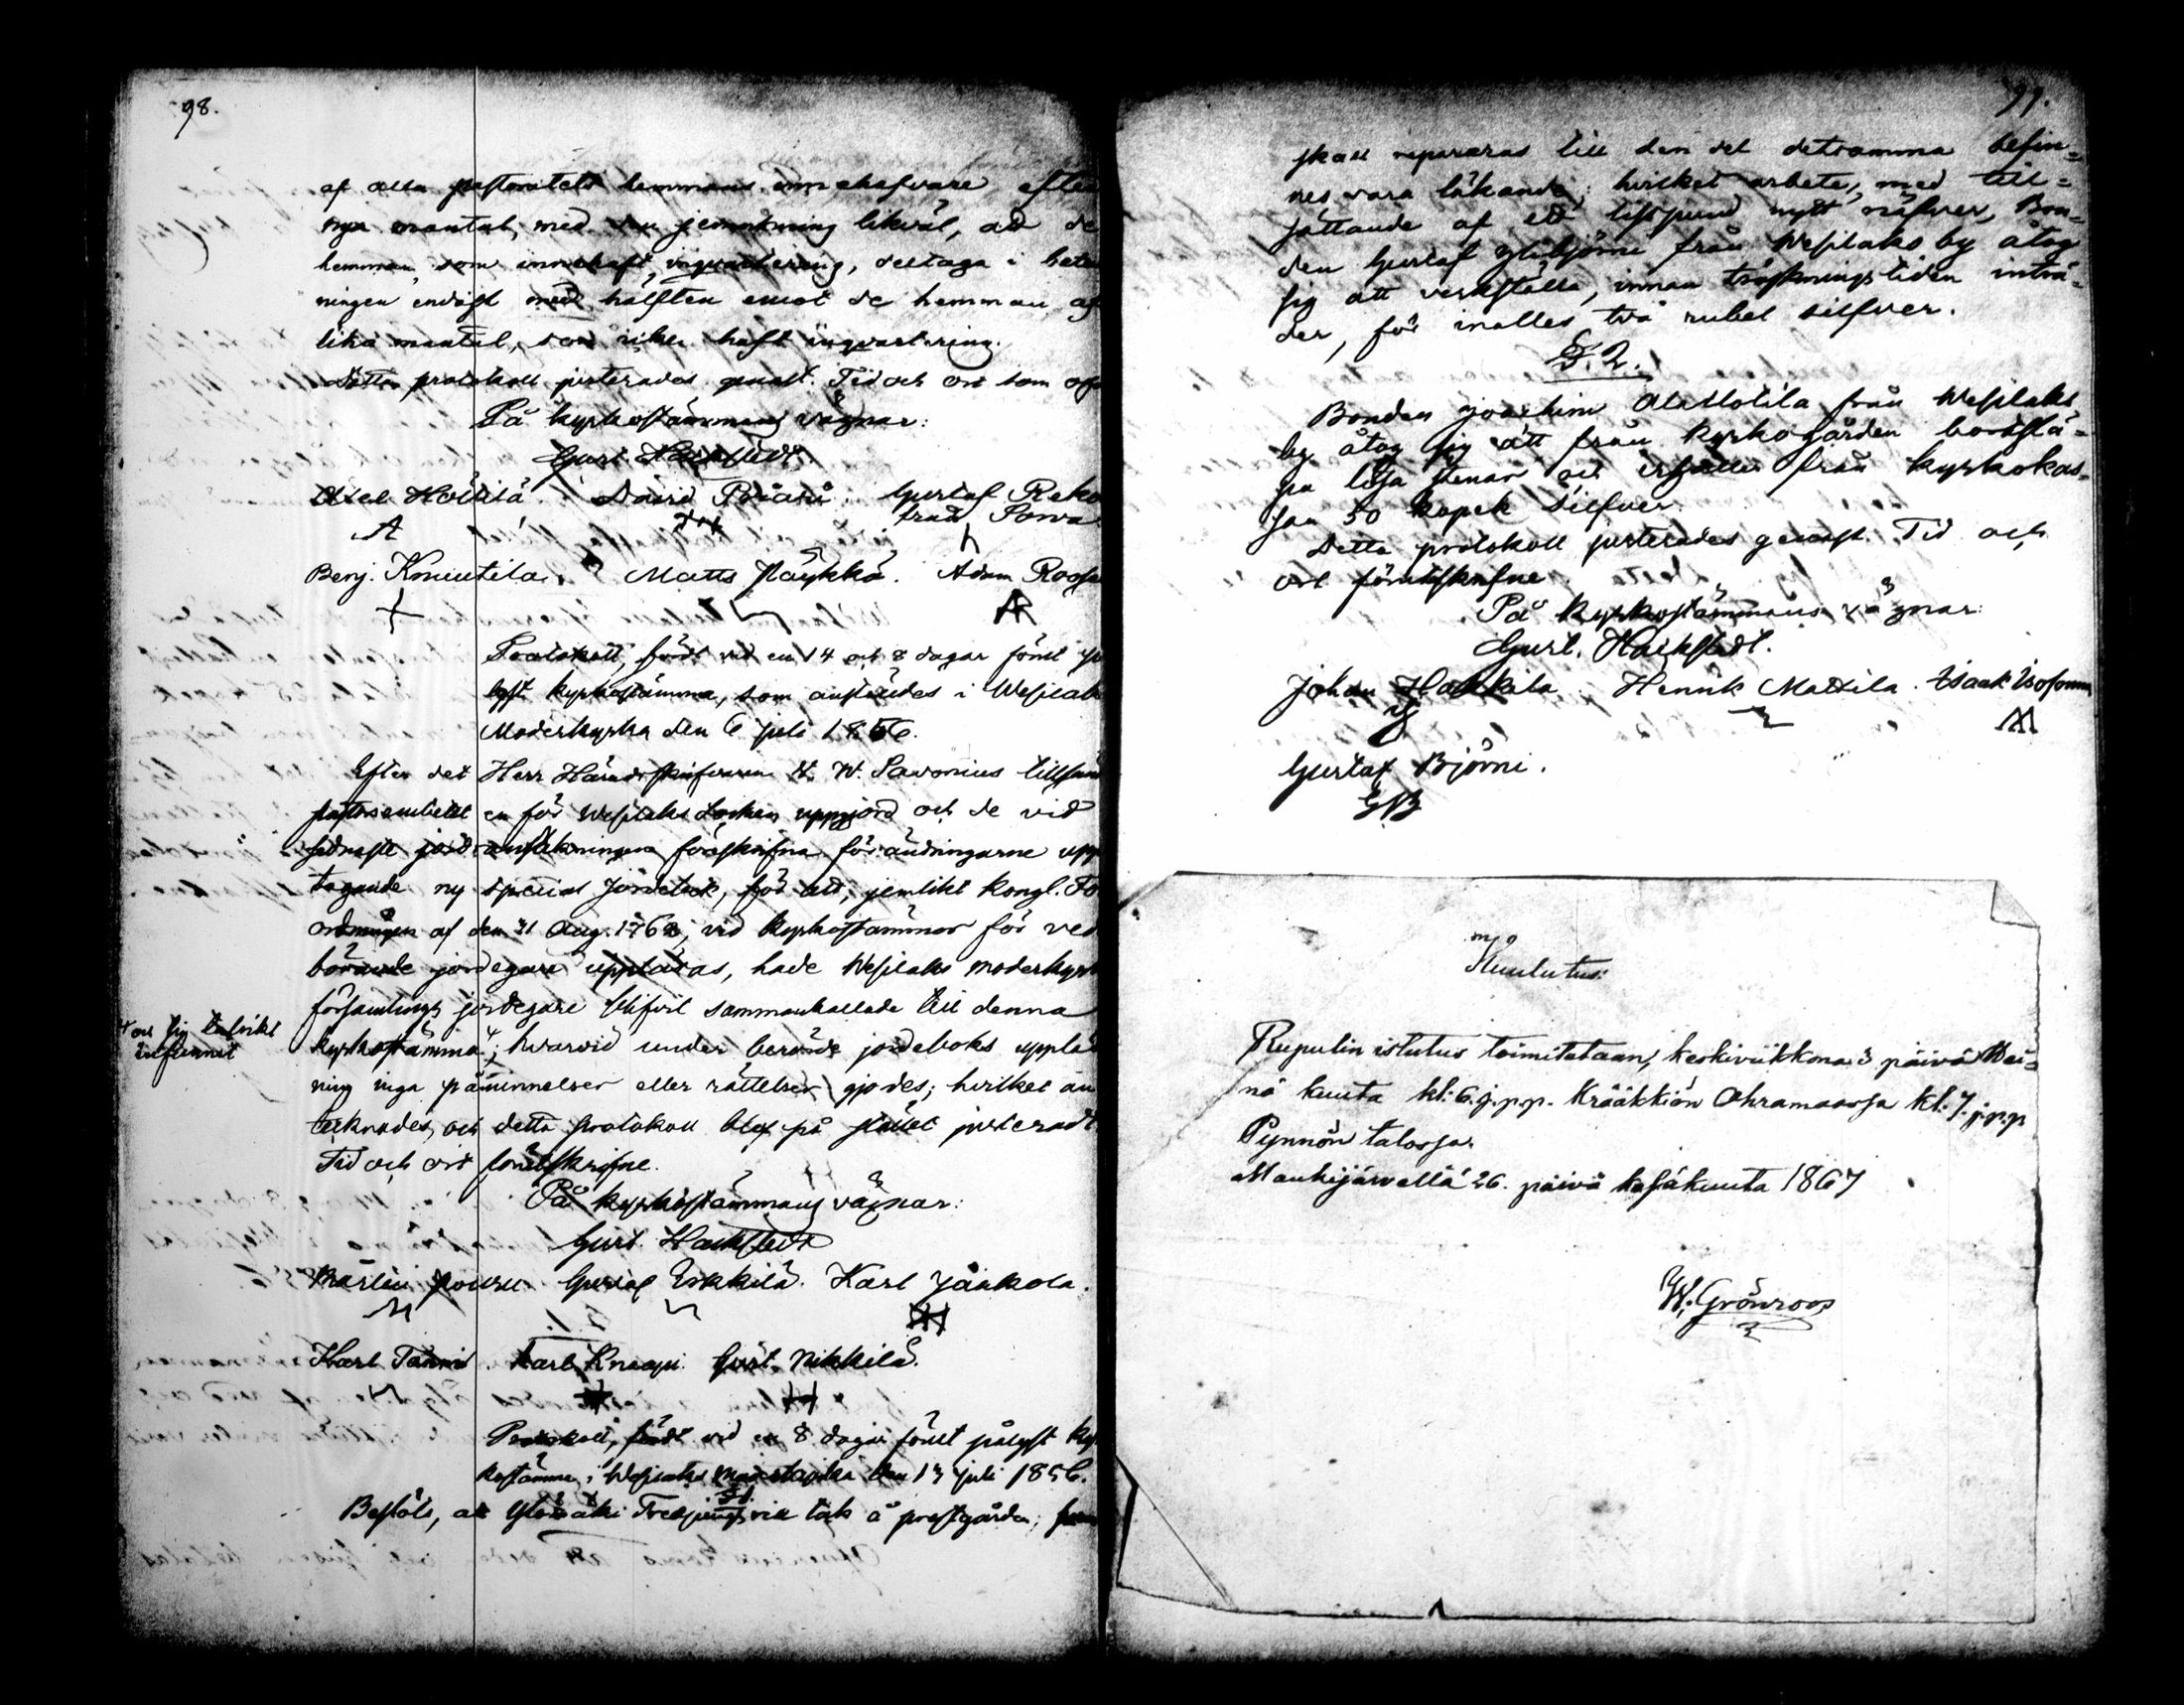 98.
af alla pastoratets hemmans innehafvare efter
nya mantal, med den jemnkning likväl, att de
hemman som innehaft inqvartering, deltaga i betal
ningen endast med hälften emot de hemman af
lika mantal, som icke haft inqvartering.
Detta protokoll justerades genast. Tid och ort som of
På kyrkostämmans vägnar:
Gust. Hackstedt.
Axel Hollilä. David Gustaf Reko
från Sorva
A
Benj. Knuutila. Matts Päykkä. Adam
Protokoll, fördt vid en 14 och 8 dagar förut
lyst kyrkostämma, som anställdes i Wesilaks
Moderkyrka den 6 juli 1856.
Efter det Herr Häradsskrifvaren W. Savonius tillsändt
pastorsembetet en för Wesilaks Socken uppgjord och de vid
sednaste föreskrifna förändringarne upp
tagande ny special Jordebok, för att, jemlikt Kongl. Fö
ordningen af den 31 Aug. 1768, vid kyrkostämmor för ved
börande jordegare uppläsas, hade Wesilaks moderkyrk
församlings jordegare blifvit sammankallade till denna
kyrkostämma, hvarvid under berörde jordeboks uppläs
och sig talrikt
infunnit
ning inga påminnelser eller rättelser gjordes; hvilket an
tecknades, och detta protokoll blef på stället justeradt
Tid och ort förutskrifne.
På kyrkostämmans vägnar:
Gust. Hackstedt
Martin Gustaf Erkkilä. Karl Jaakola.
Karl Tannis. Karl Knaapi. Gust. Nikkilä.
Protokoll, fördt vid en 8 dagar förut pålyst kyr
kostämma i Wesilaks Moderkyrka den 13 juli 1856.
§1.
Beslöts, att tak å prestgården,
99.
skall repareras till den del detsamma befin=
nes vara läkande; hvilket arbete, med till=
sättande af ett lispund nytt näfver, Bon=
den Gustaf Ylibjörni från Wesilaks by åtog
sig att verkställa, innan tröskningstiden inträ=
der, för inalles två rubel silfver.
§. 2.
Bonden Joachim Alattotila från Wesilaks
by åtog sig att från kyrkogården bortslä=
pa lösa stenar och erhåller från kyrkokas=
san 50 kopek silfver.
Detta protokoll justerades genast. Tid och
ort förutskrifne.
På kyrkostämmans vägnar:
Gust. Hackstedt.
Johan Hakkila. Henrik Mattila. Isaak
Gustaf Björni.
GB
Kuulutus:
Rupulin istutus toimitetaan, keskiviikkona 3 päivä Hei=
nä kuuta kl: 6. j.p.p. Krääkkiön Ohramaassa kl: 7. j.p.p
Pynnön talossa.
Mauhijärvellä 26. päivä kesäkuuta 1867
W. Grönroos